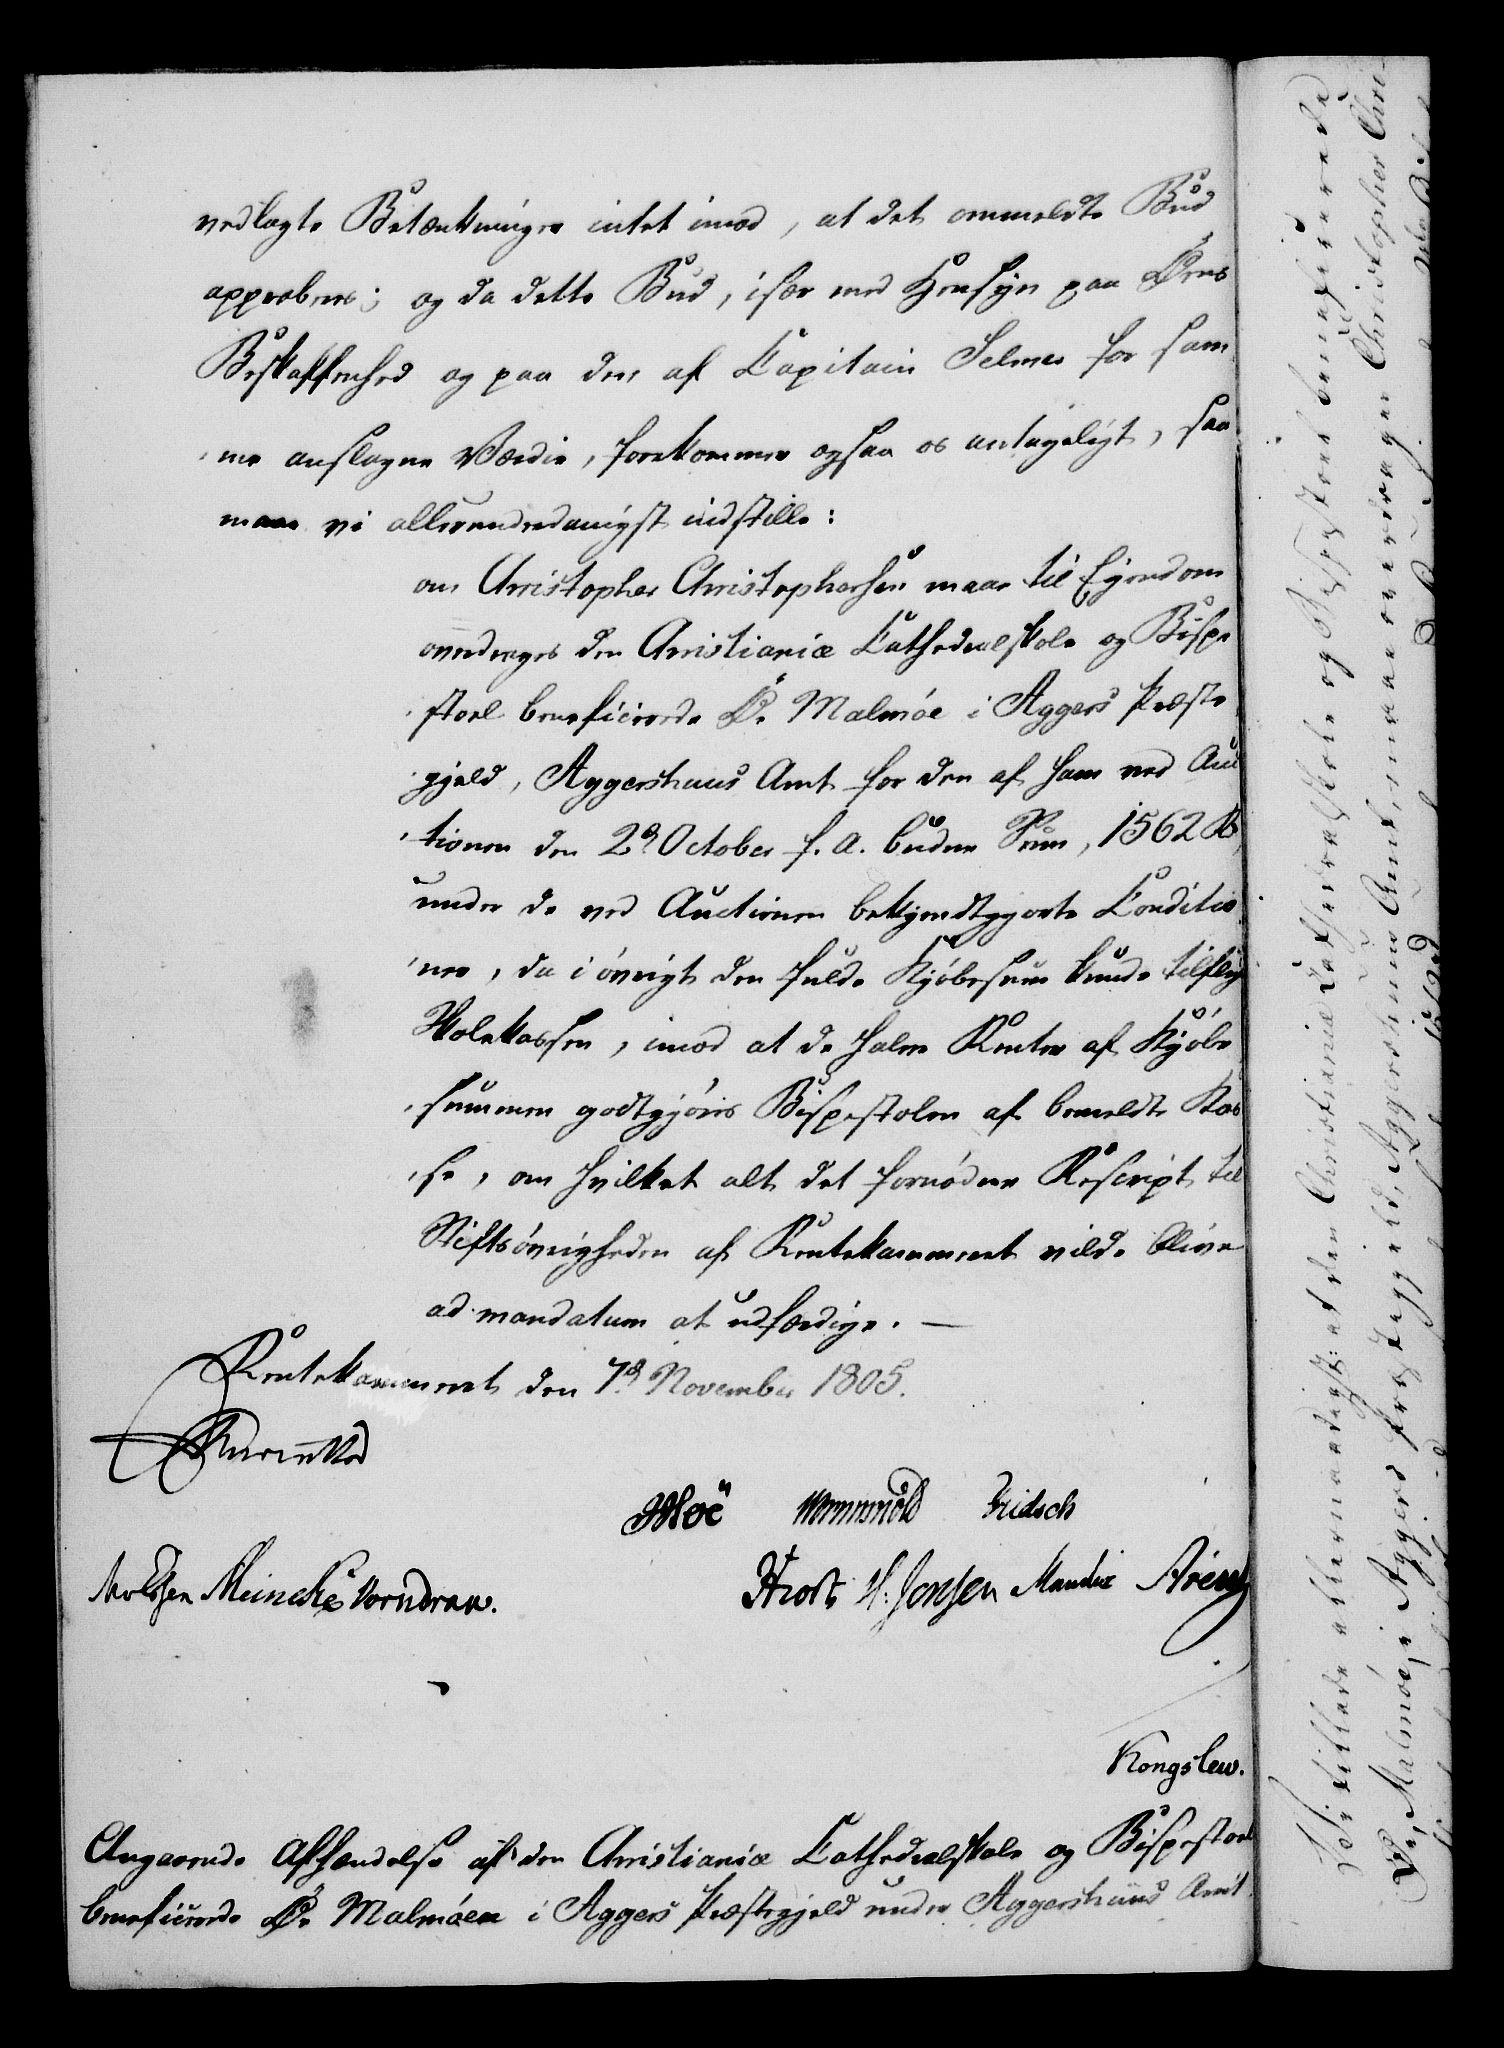 vedlagte Betænkninger intet imod, at det ommeldte Bud
approberes; og da dette Bud, især med Hensyn paa Øens
Beskaffenhed og paa den af Capitain Selmer for sam
me anslagne Værdie, forekommer ogsaa os antageligt, saa
maae vi allerunderdanigst indstille:
om Christopher Christophersen maae til Ejendom
overdrages den Christianiæ Cathedralskole og Bispe
stoel beneficerede Øe Malmöe i Aggers Præste
gjeld, Aggershuus Amt for den af ham ved Auc
tionen den 2d October f. A. budne Sum, 1562 Rd
under de ved Auctionen bekjendtgjorte Conditio
ner, da i övrigt den fulde Kjöbesum kunde tilflyde
Skolekassen, imod at de halve Renter af Kjöbe
summen godtgjöres Bispestolen af bemeldte Kas
se, om hvilket alt det fornödne Rescript til
Stiftsövrigheden af Rentekammeret vilde blive
ad mandatum at udfærdige. —
Rentekammeret den 7d November 1805.
Reventlow
Moë Wormskiold Fridsch
Meincke Vorndran.
Hrost H. Jensen Manthe Arentz
Kongslew.
Angaaende Afhændelse af den Christianiæ Cathedralskole og Bispestoel
beneficerede Øe Malmöen i Aggers Præstegjeld under Aggershuus Amt.
allernaadigst: at den Christianiæ Cathedralskole og Bispestoel beneficerede
Øe, Malmöe, i Aggers Præstegjeld, Aggershuus Amt, maae overdrages Christopher Chri-